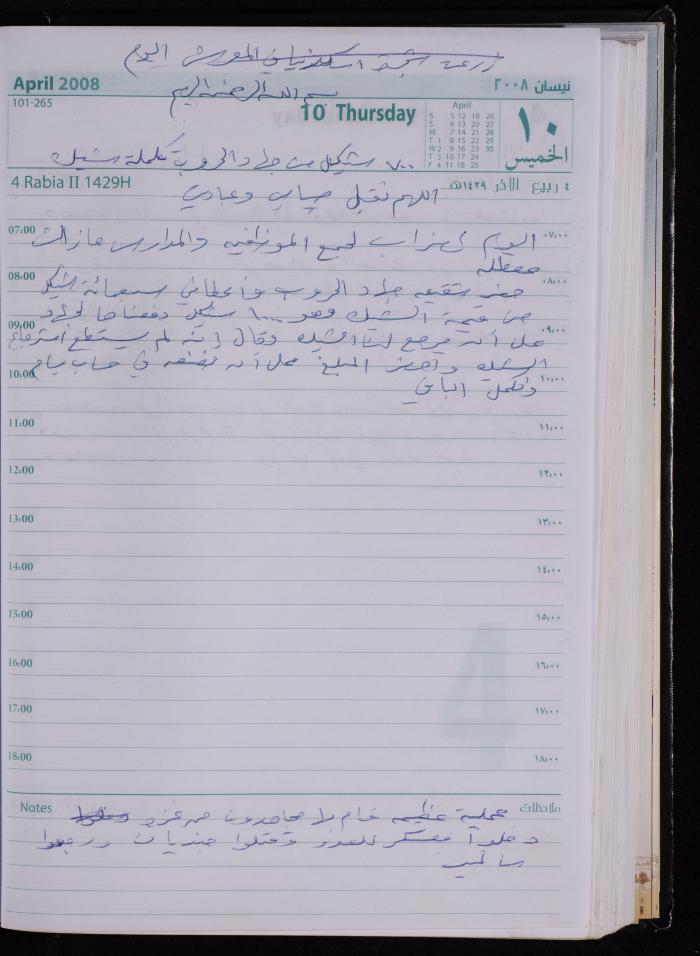 زرعت شجرة اسكدنيا في المعرش اليوم
April 2008
نيسان ٢٠٠٨
بسم الله الرحمن الرحيم
101-265
10 Thursday
April
S 5 12 19 26
S 6 13 20 27
M 7 14 21 28
T 1 8 15 22 29
W 2 9 16 23 30
T 3 10 17 24
F 4 11 18 25
١٠
الخميس
٧٠٠ شيكل من جهاد الحروب تكملة شيك
4 Rabia II 1429H
٤ ربيع الآخر ١٤٢٩هـ
اللهم تقبل صيامي وعبادتي
07:00 ٠٧:٠٠
اليوم اضراب لجميع الموظفين والمدارس مازالت
معطلة
08:00 ٠٨:٠٠
حضر شقيق جهاد الحروب وأعطاني سبعمائة شيكل
من قيمة الشيك وهو ١٠٠٠ شيكل دفعناها لجهاد
09:00 ٠٩:٠٠
على أن يرجع لنا الشيك وقال إنه لم يستطع استرجاع
الشيك وأحضر المبلغ على أن نضعه في حساب
10:00 ١٠:٠٠
ونكمل الباقي
11:00 ١١:٠٠
12:00 ١٢:٠٠
13:00 ١٣:٠٠
14:00 ١٤:٠٠
15:00 ١٥:٠٠
16:00 ١٦:٠٠
17:00 ١٧:٠٠
18:00 ١٨:٠٠
4
Notes
ملاحظات
عملية عظيمة قام بها مجاهدون من غزة
دخلوا معسكر للعدو وقتلوا جنديان ورجعوا
سالمين